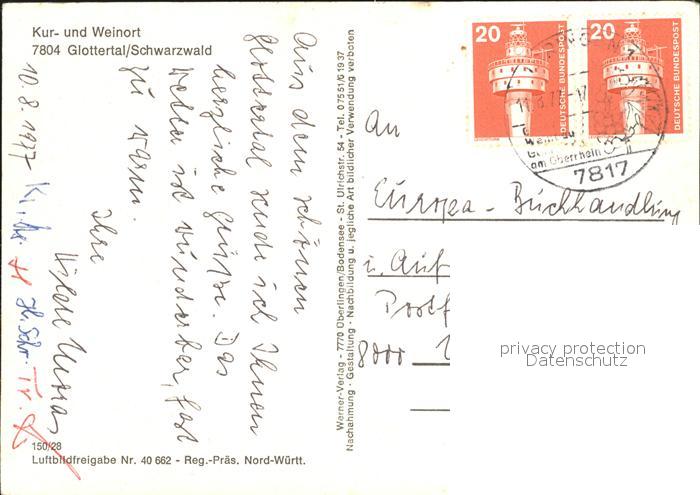 Kur- und Weinort
7804 Glottertal/Schwarzwald
10. 8. 1977
Aus dem schönen
Glottertal sende ich Ihnen
herzliche Grüsse. Das
Wetter ist wunderbar, fast
zu warm.
Ihre
150/28
Luftbildfreigabe Nr. 40 662 - Reg.-Präs. Nord-Württ.
Werner-Verlag - 7770 Überlingen/Bodensee - St. Ulrichstr. 54 - Tel. 07551/61937
Nachahmung - Gestaltung - Nachbildung u. jegliche Art bildlicher Verwendung verboten
20
DEUTSCHE BUNDESPOST
20
DEUTSCHE BUNDESPOST
am Oberrhein
7817
An
Europa - Buchhandlung
i. Auf
Postf
8000 1
privacy protection
Datenschutz